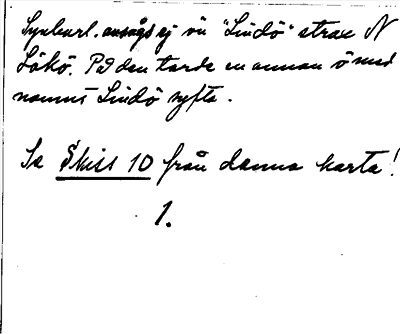 Synbarl. ansågs ej ön "Lindö" strax N
Lökö. På den torde en annan ö med
namnet Lindö syfta.
Se Skiss 10 från denna karta!
1.